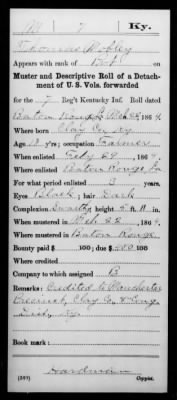 M 7 Ky.
Thomas Mobley
Appears with rank of Pvt on
Muster and Descriptive Roll of a Detach-
ment of U. S. Vols. forwarded
for the 7 Reg't Kentucky Inf. Roll dated
Baton Rouge La Mch 22, 1864.
Where born Clay Co, Ky
Age 18 y'rs; occupation Farmer
When enlisted Feby 29, 1864.
Where enlisted Baton Rouge, La
For what period enlisted 3 years.
Eyes Black; hair Dark
Complexion Swarthy; height ft. in.
When mustered in Mch 22, 1864.
Where mustered in Baton Rouge
Bounty paid $ 100; due $ 100
Where credited
Company to which assigned B
Remarks: Credited to Manchester
Precinct, Clay Co, Cong.
Dist, Ky.
Book mark:
(339) Copyist.